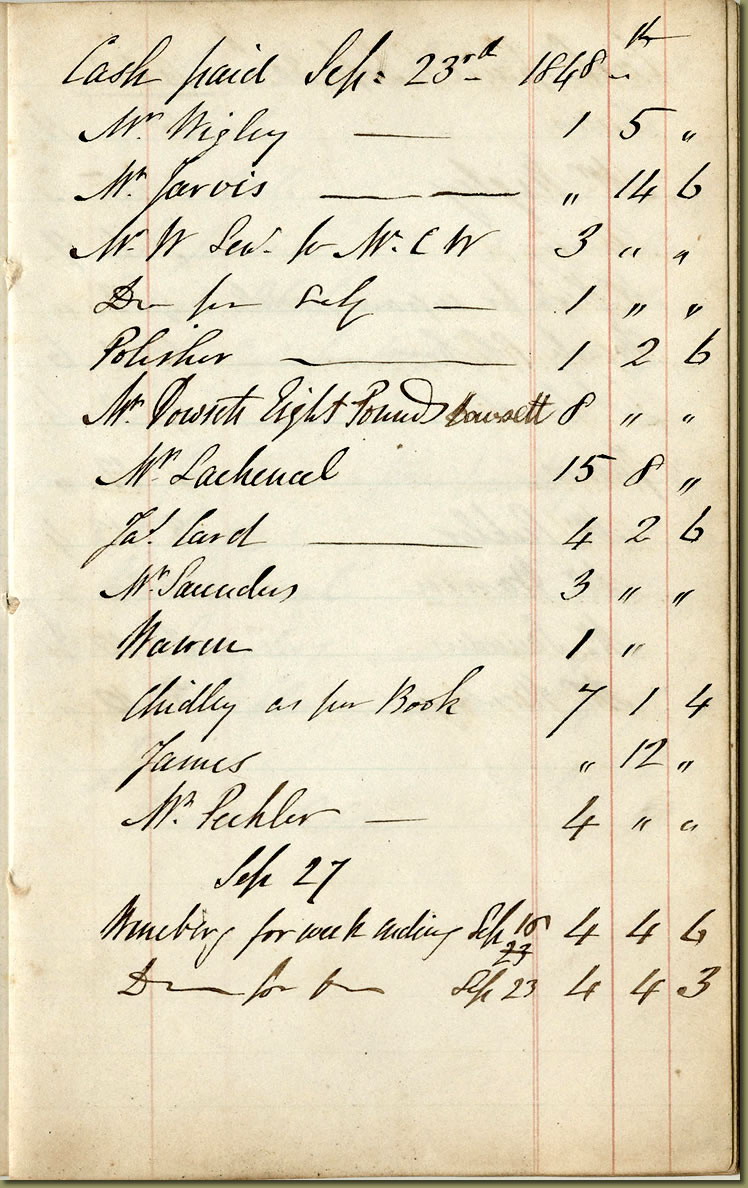 Cash paid Sep: 23rd 1848
Mr Wigley — 1 5 "
Mr. Jarvis — — " 14 6
Mr W for Mr. C W 3 " "
Do for Self — 1 " "
Polisher — 1 2 6
Mr. Dowsett Eight Pounds Dowsett 8 " "
Mr. Lachenal 15 8 "
Jas. Card — 4 2 6
Mr. Saunders 3 " "
Warren 1 "
Chidley as per Book 7 1 4
James " 12 "
Mr. Pechler — 4 " "
Sep 27
for week ending Sep 16 4 4 6
23
Do for Do Sep 23 4 4 3